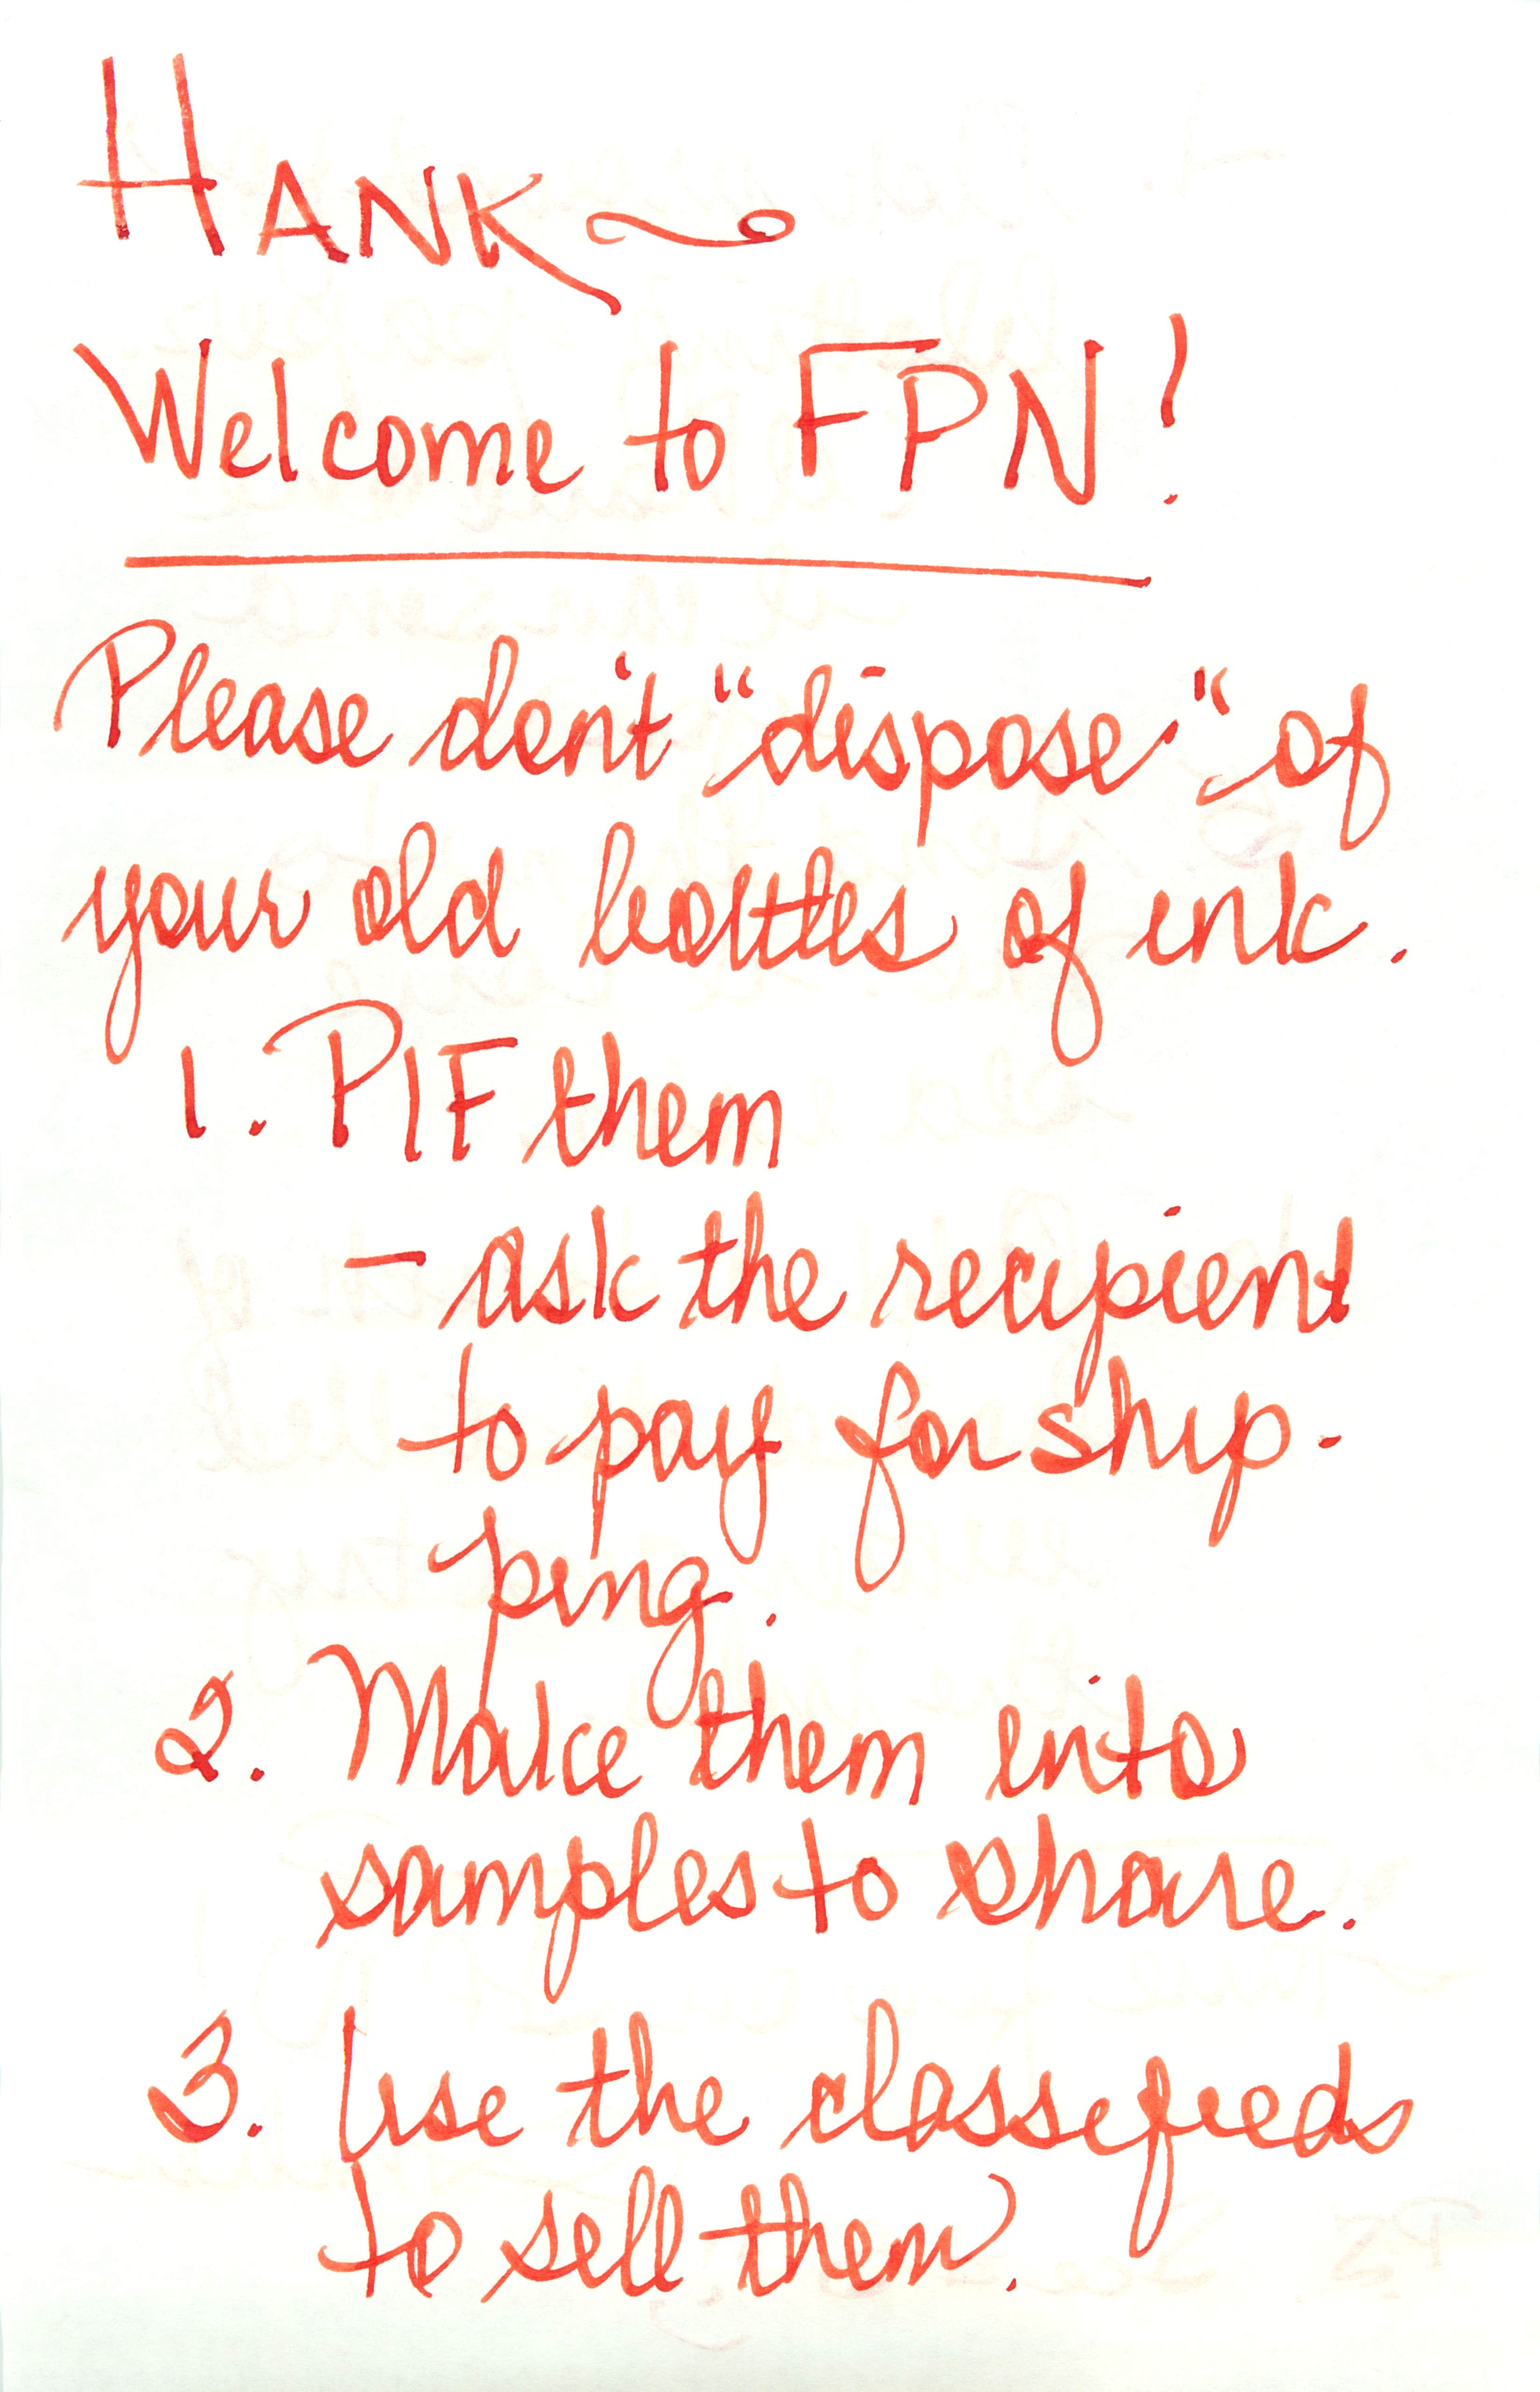 HANK ~
Welcome to FPN!
Please don't "dispose" of
your old bottles of ink.
1. PIF them
- ask the recipient
to pay for ship-
ping.
2. Make them into
samples to share.
3. Use the classifieds
to sell them.